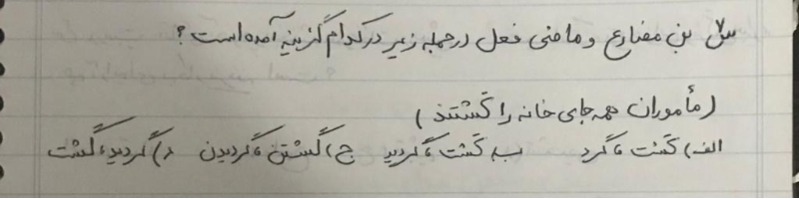 س۷ بن مضارع و ماضی فعل در جمله زیر در کدام گزینه آمده است؟
(مأموران همه جای خانه را گَشتند)
الف) گشت، گرد ب) گشت، گردید ج) گشتن، گردیدن د) گردید، گشت